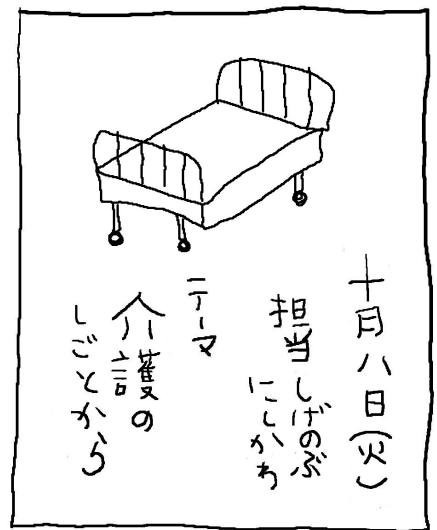 十月八日(火)
担当 しげのぶ
にしかわ
テーマ
介護の
しごとから